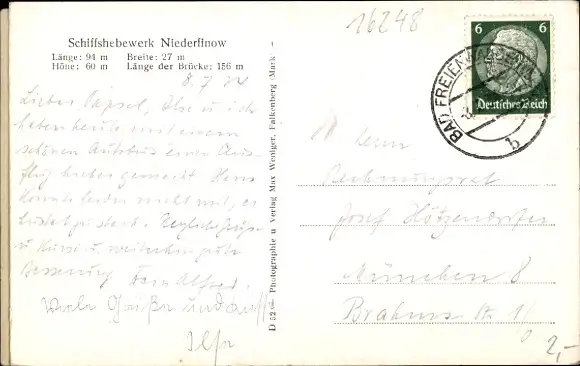 16248
Schiffshebewerk Niederfinow
Länge: 94 m Breite: 27 m
Höhe: 60 m Länge der Brücke: 156 m
8.7.
Lieber
haben heute mit einem
schönen Autobus einen Aus-
flug hierher gemacht. Hans
konnte leider nicht mit, es
Herzliche Grüße
u. Küsse u. weiterhin gute
Besserung Dein Alfred.
Viele Grüße und
Ilse
D 52 Photographie u Verlag Max Weniger, Falkenberg (Mark
6 6
Deutsches Reich
BAD FREIENWALDE
b
Herrn
Rechnungsrat
Josef Hötzendorfer
München 8
Brahms Str. 1/
2,-